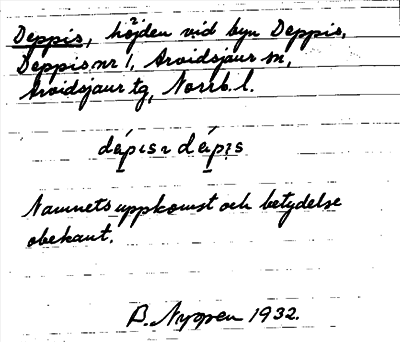 Deppis, höjden vid byn Deppis,
Deppis nr 1, Arvidsjaur sn,
Arvidsjaur tg, Norrb. l.
Namnets uppkomst och betydelse
obekant.
B. Nygren 1932.